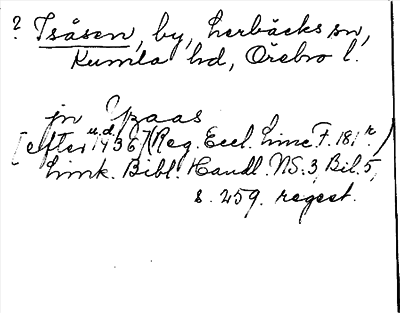 ? Isåsen, by, Lerbäcks sn,
Kumla hd, Örebro l.
jn Ysaas
[efter u.d. 1436] (Reg. Eccl. Linc F. 181 r.)
Link. Bibl. Handl. NS. 3, Bil. 5,
s. 259. regest.